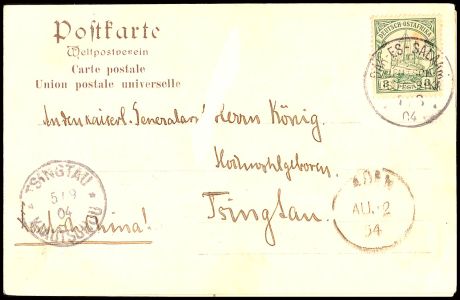 Postkarte
Weltpostverein
Carte postale
Union postale universelle
DEUTSCH-OSTAFRIKA
8 PESA 8
DAR-ES-SALAAM
04
An den kaiserl. Generalarzt Herrn König.
Hochwohlgeboren
Tsingtau.
TSINGTAU
5/9
04
KIAUTSCHOU
China!
ADEN
AU. 2
04